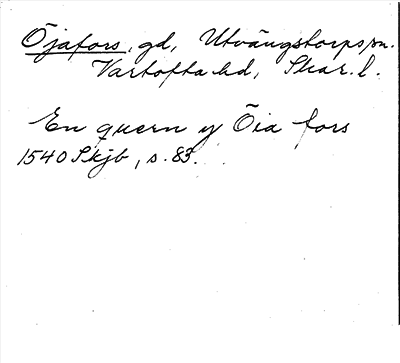 Öjafors, gd, Utvängstorps sn.
Vartofta hd, Skar. l.
En quern y Öia fors
1540 Skjb, s. 83.